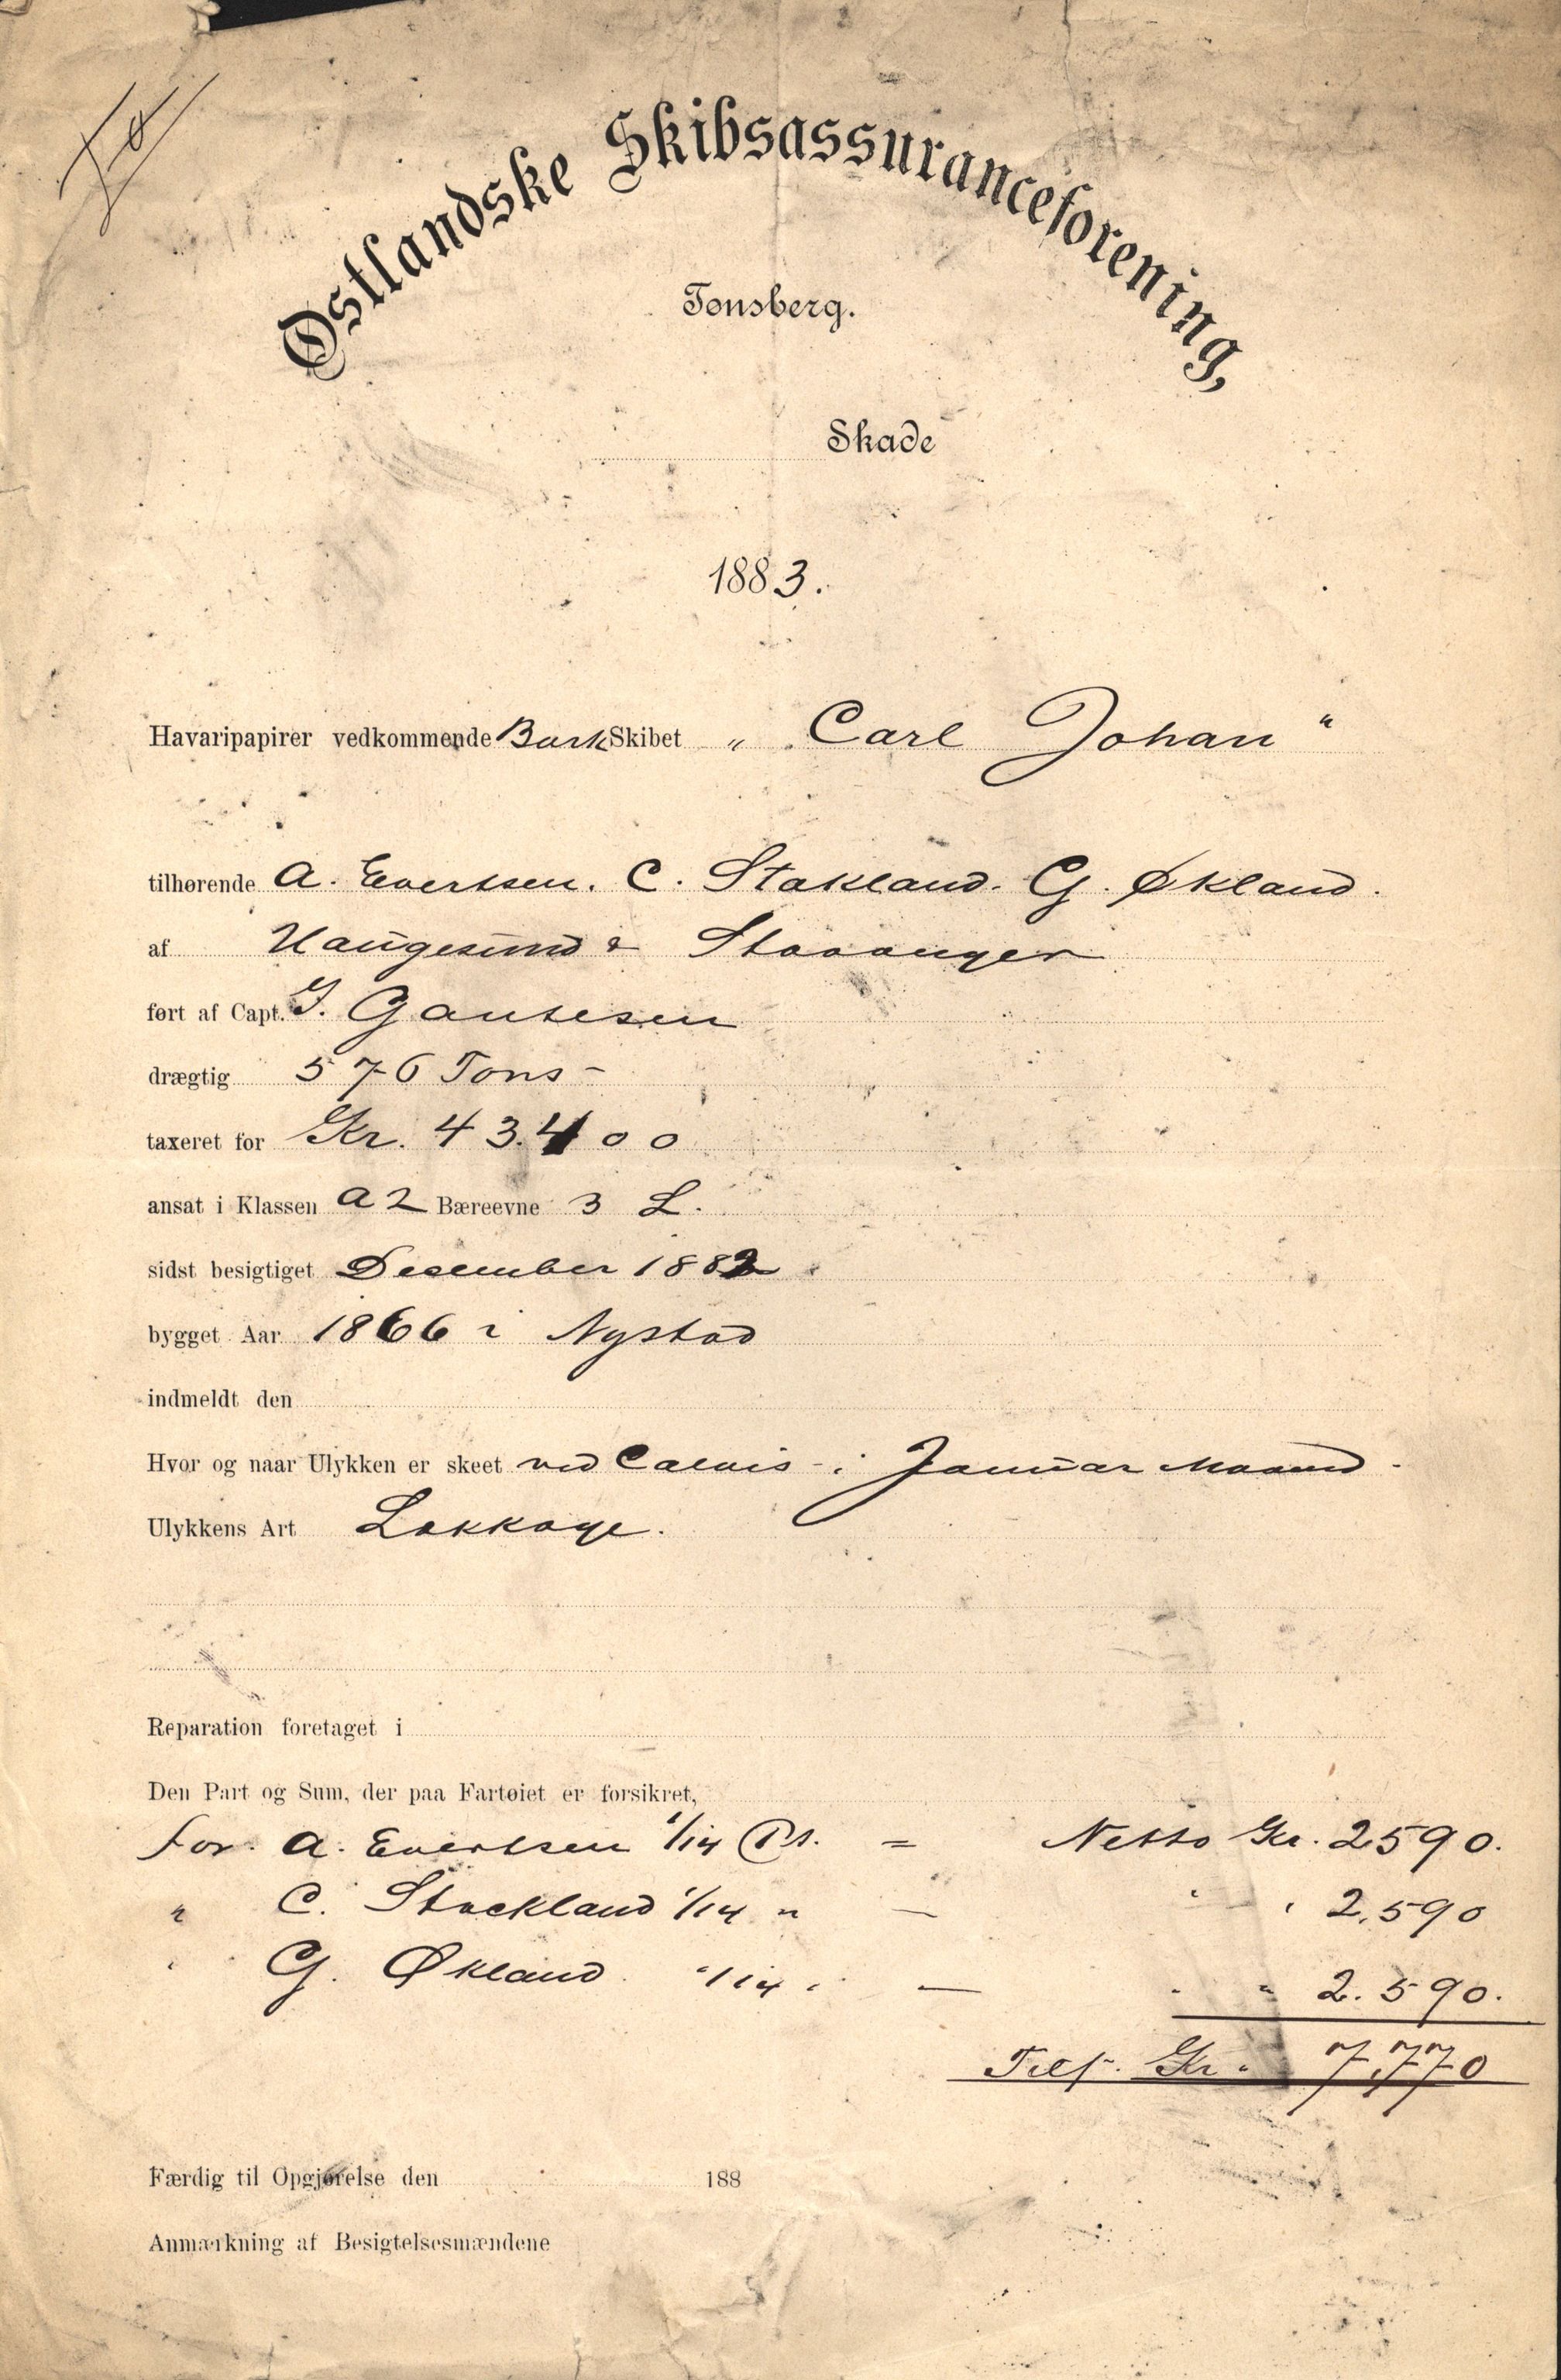 Østlandske Skibsassuranceforening,
Tønsberg.
Skade
1883.
Havaripapirer vedkommende Bark Skibet „ Carl Johan “
tilhørende A. Evertsen. C. Stakland. G. Økland.
af Haugesund & Stavanger
ført af Capt. G. Gautesen
drægtig 576 Tons -
taxeret for Kr. 43.400
ansat i Klassen A2 Bæreevne 3 L.
sidst besigtiget Desember 1882
bygget Aar 1866 i Nystad
indmeldt den
Hvor og naar Ulykken er skeet ved Calais - i Januar Maaned -
Ulykkens Art Lækkage.
Reparation foretaget i
Den Part og Sum, der paa Fartøiet er forsikret,
for. A. Evertsen 1/14 Pt. = Netto Kr. 2590.
" C. Stockland 1/14 " — " " 2,590
" G. Økland 1/14 " — " " 2.590.
Tils. Kr. 7,770
Færdig til Opgjørelse den 188
Anmærkning af Besigtelsesmændene